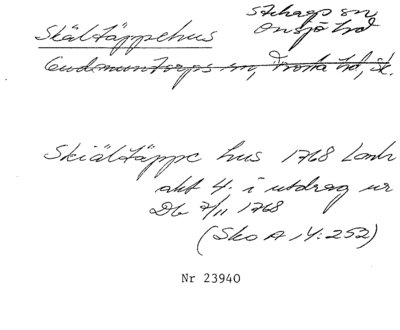 Stehags sn
Skältäppehus Onsjö hd
Gudmuntorps sn, Frosta hd, sk.
Skiältäppe hus 1768 Lanh
akt 4. i utdrag ur
Db 7/11 1768
(Sko A IV:252)
Nr 23940